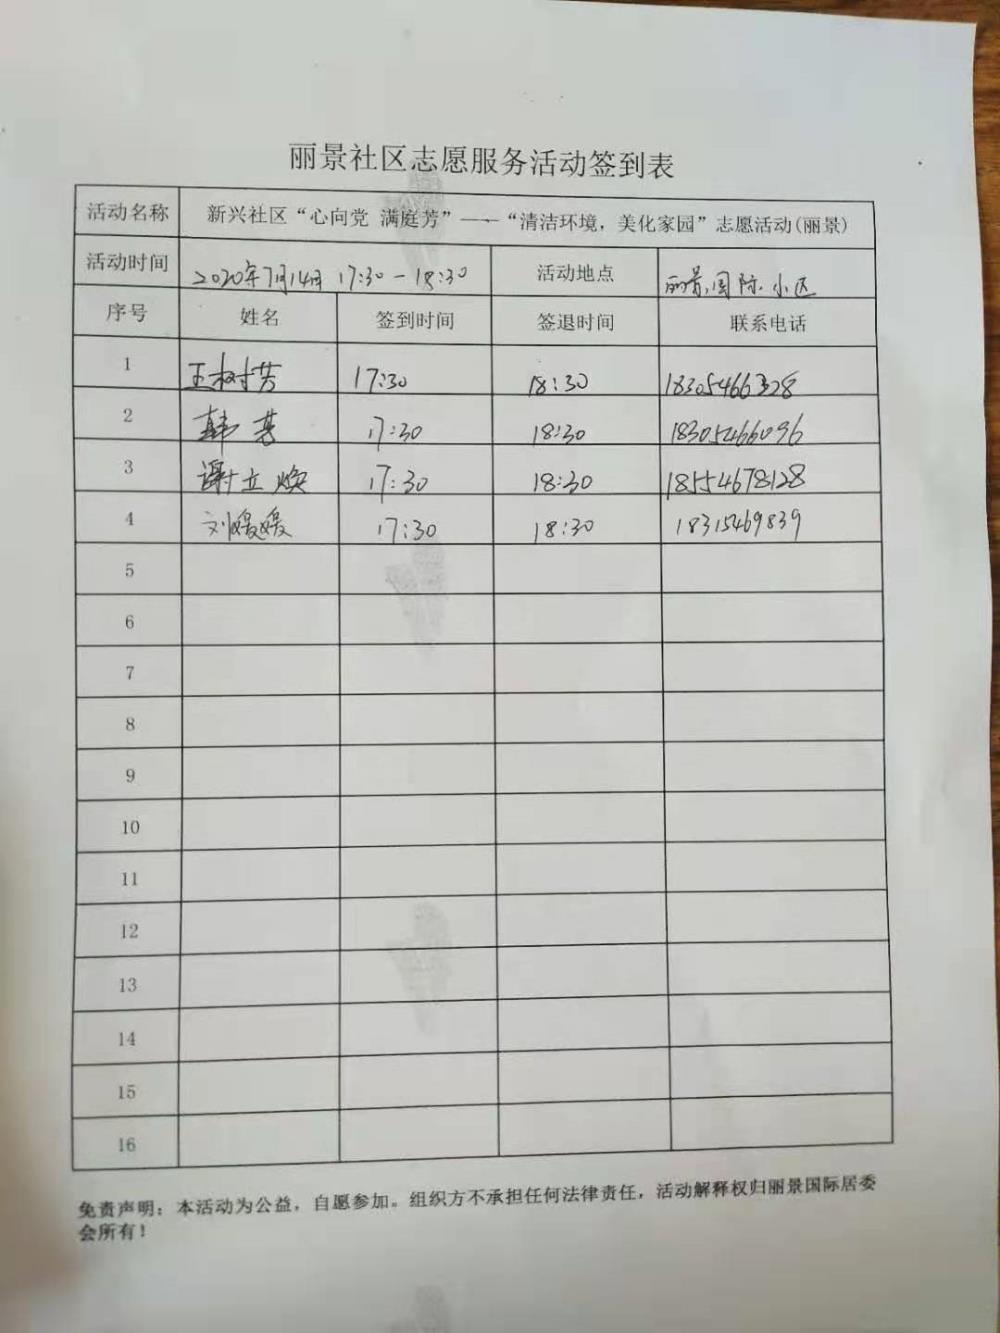 丽景社区志愿服务活动签到表
活动名称 新兴社区“心向党 满庭芳”——“清洁环境，美化家园”志愿活动(丽景)
活动时间 2020年7月14日 17:30-18:30 活动地点 丽景国际小区
序号 姓名 签到时间 签退时间 联系电话
1 王树芳 17:30 18:30 18305466328
2 韩芳 17:30 18:30 18305466096
3 谢立焕 17:30 18:30 18554678128
4 刘媛媛 17:30 18:30 18315469839
5
6
7
8
9
10
11
12
13
14
15
16
免责声明：本活动为公益，自愿参加。组织方不承担任何法律责任，活动解释权归丽景国际居委
会所有！